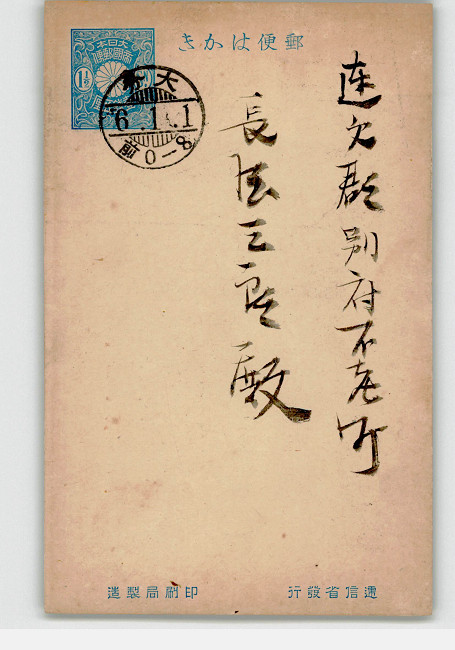 郵便はかき
大日本帝國郵便
1½
大分
6.1.1
前0-8
速見郡別府不老町
長 三郎殿
遞信省發行
印刷局製造